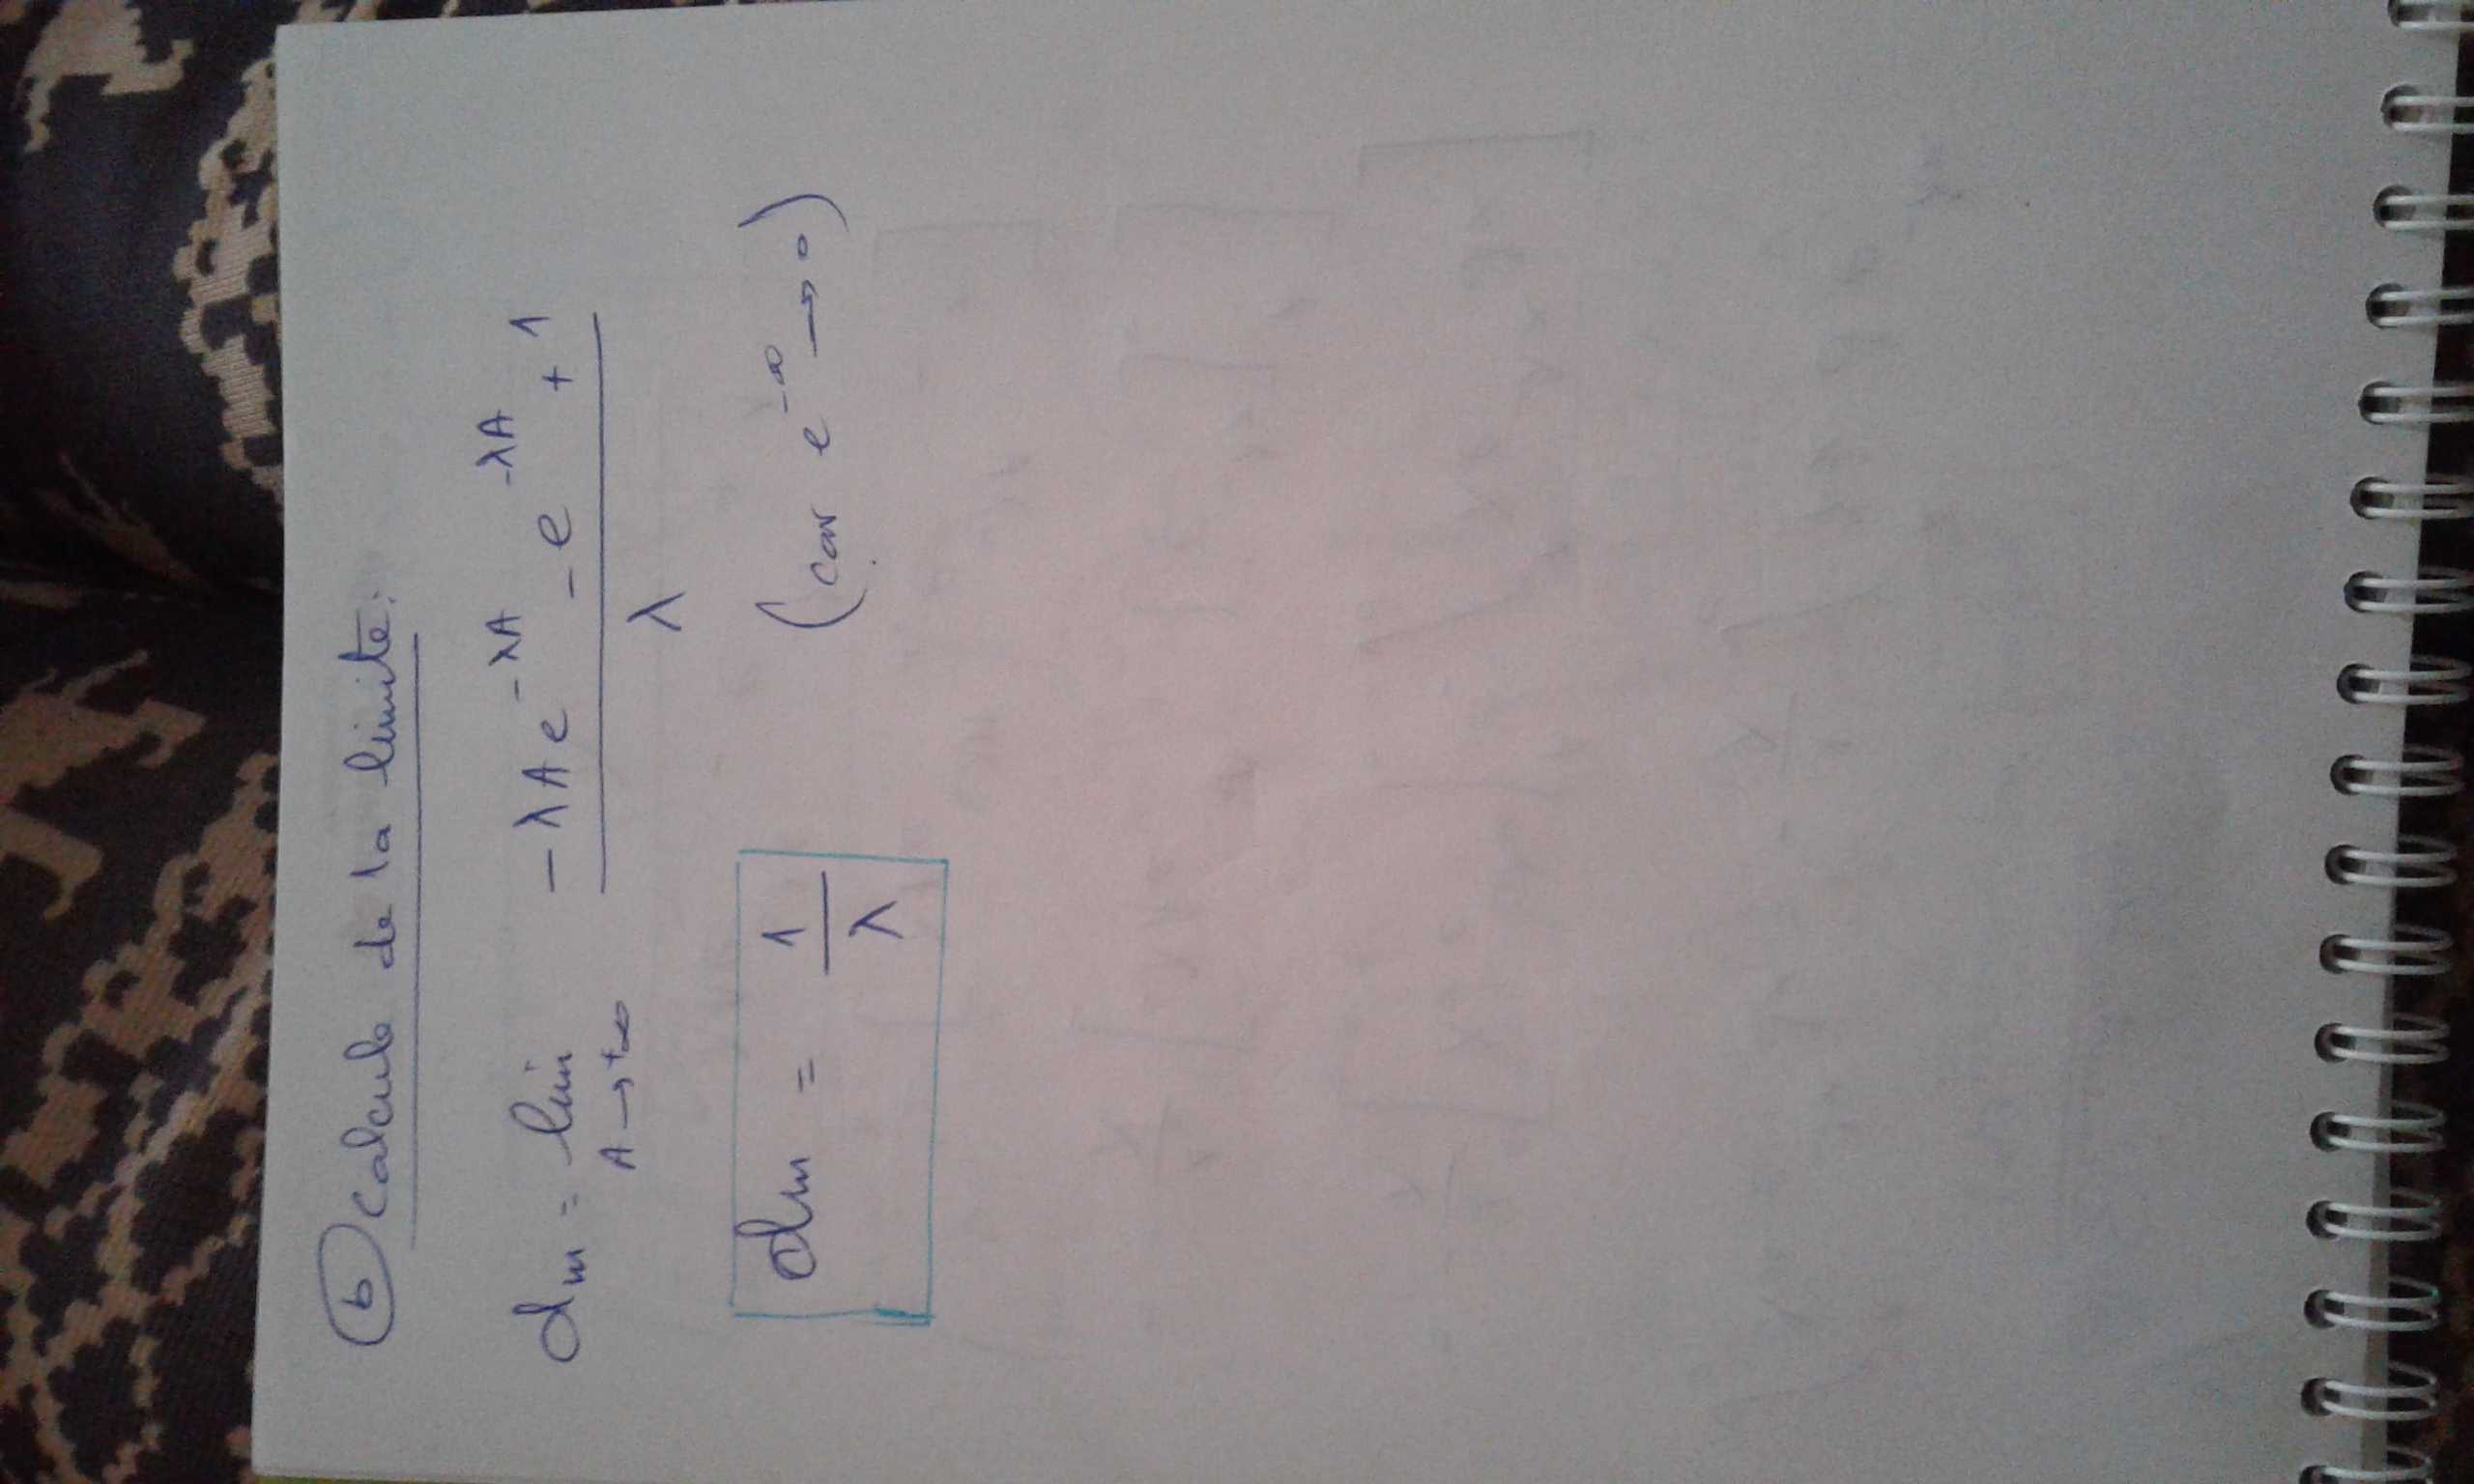 b Calcule de la limite:
dm = lim −λAe^{−λA} − e^{−λA} + 1
A→+∞ λ
dm = 1/λ (car e^{−∞} → 0)